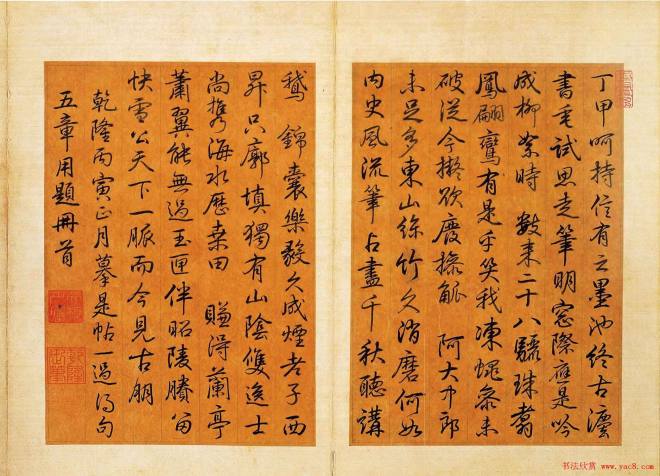 丁甲呵持信有之墨池終古灋
書垂試思走筆明窗際應是吟
成柳絮時 數來二十八驪珠翥
鳳翩鸞有是乎笑我凍蠅參未
破從今擬欲廢操觚 阿大中郎
未足多東山絲竹久消磨何如
內史風流筆占盡千秋聽講
鵝 錦囊樂毅久成煙老子西
昇只廓填獨有山陰雙逸士
尚攜海水歷桑田 賺得蘭亭
蕭翼能無過玉匣伴昭陵賸留
快雪公天下一脈而今見古朋
乾隆丙寅正月摹是帖一過得句
五章用題冊首
书法欣赏 www.yac8.com